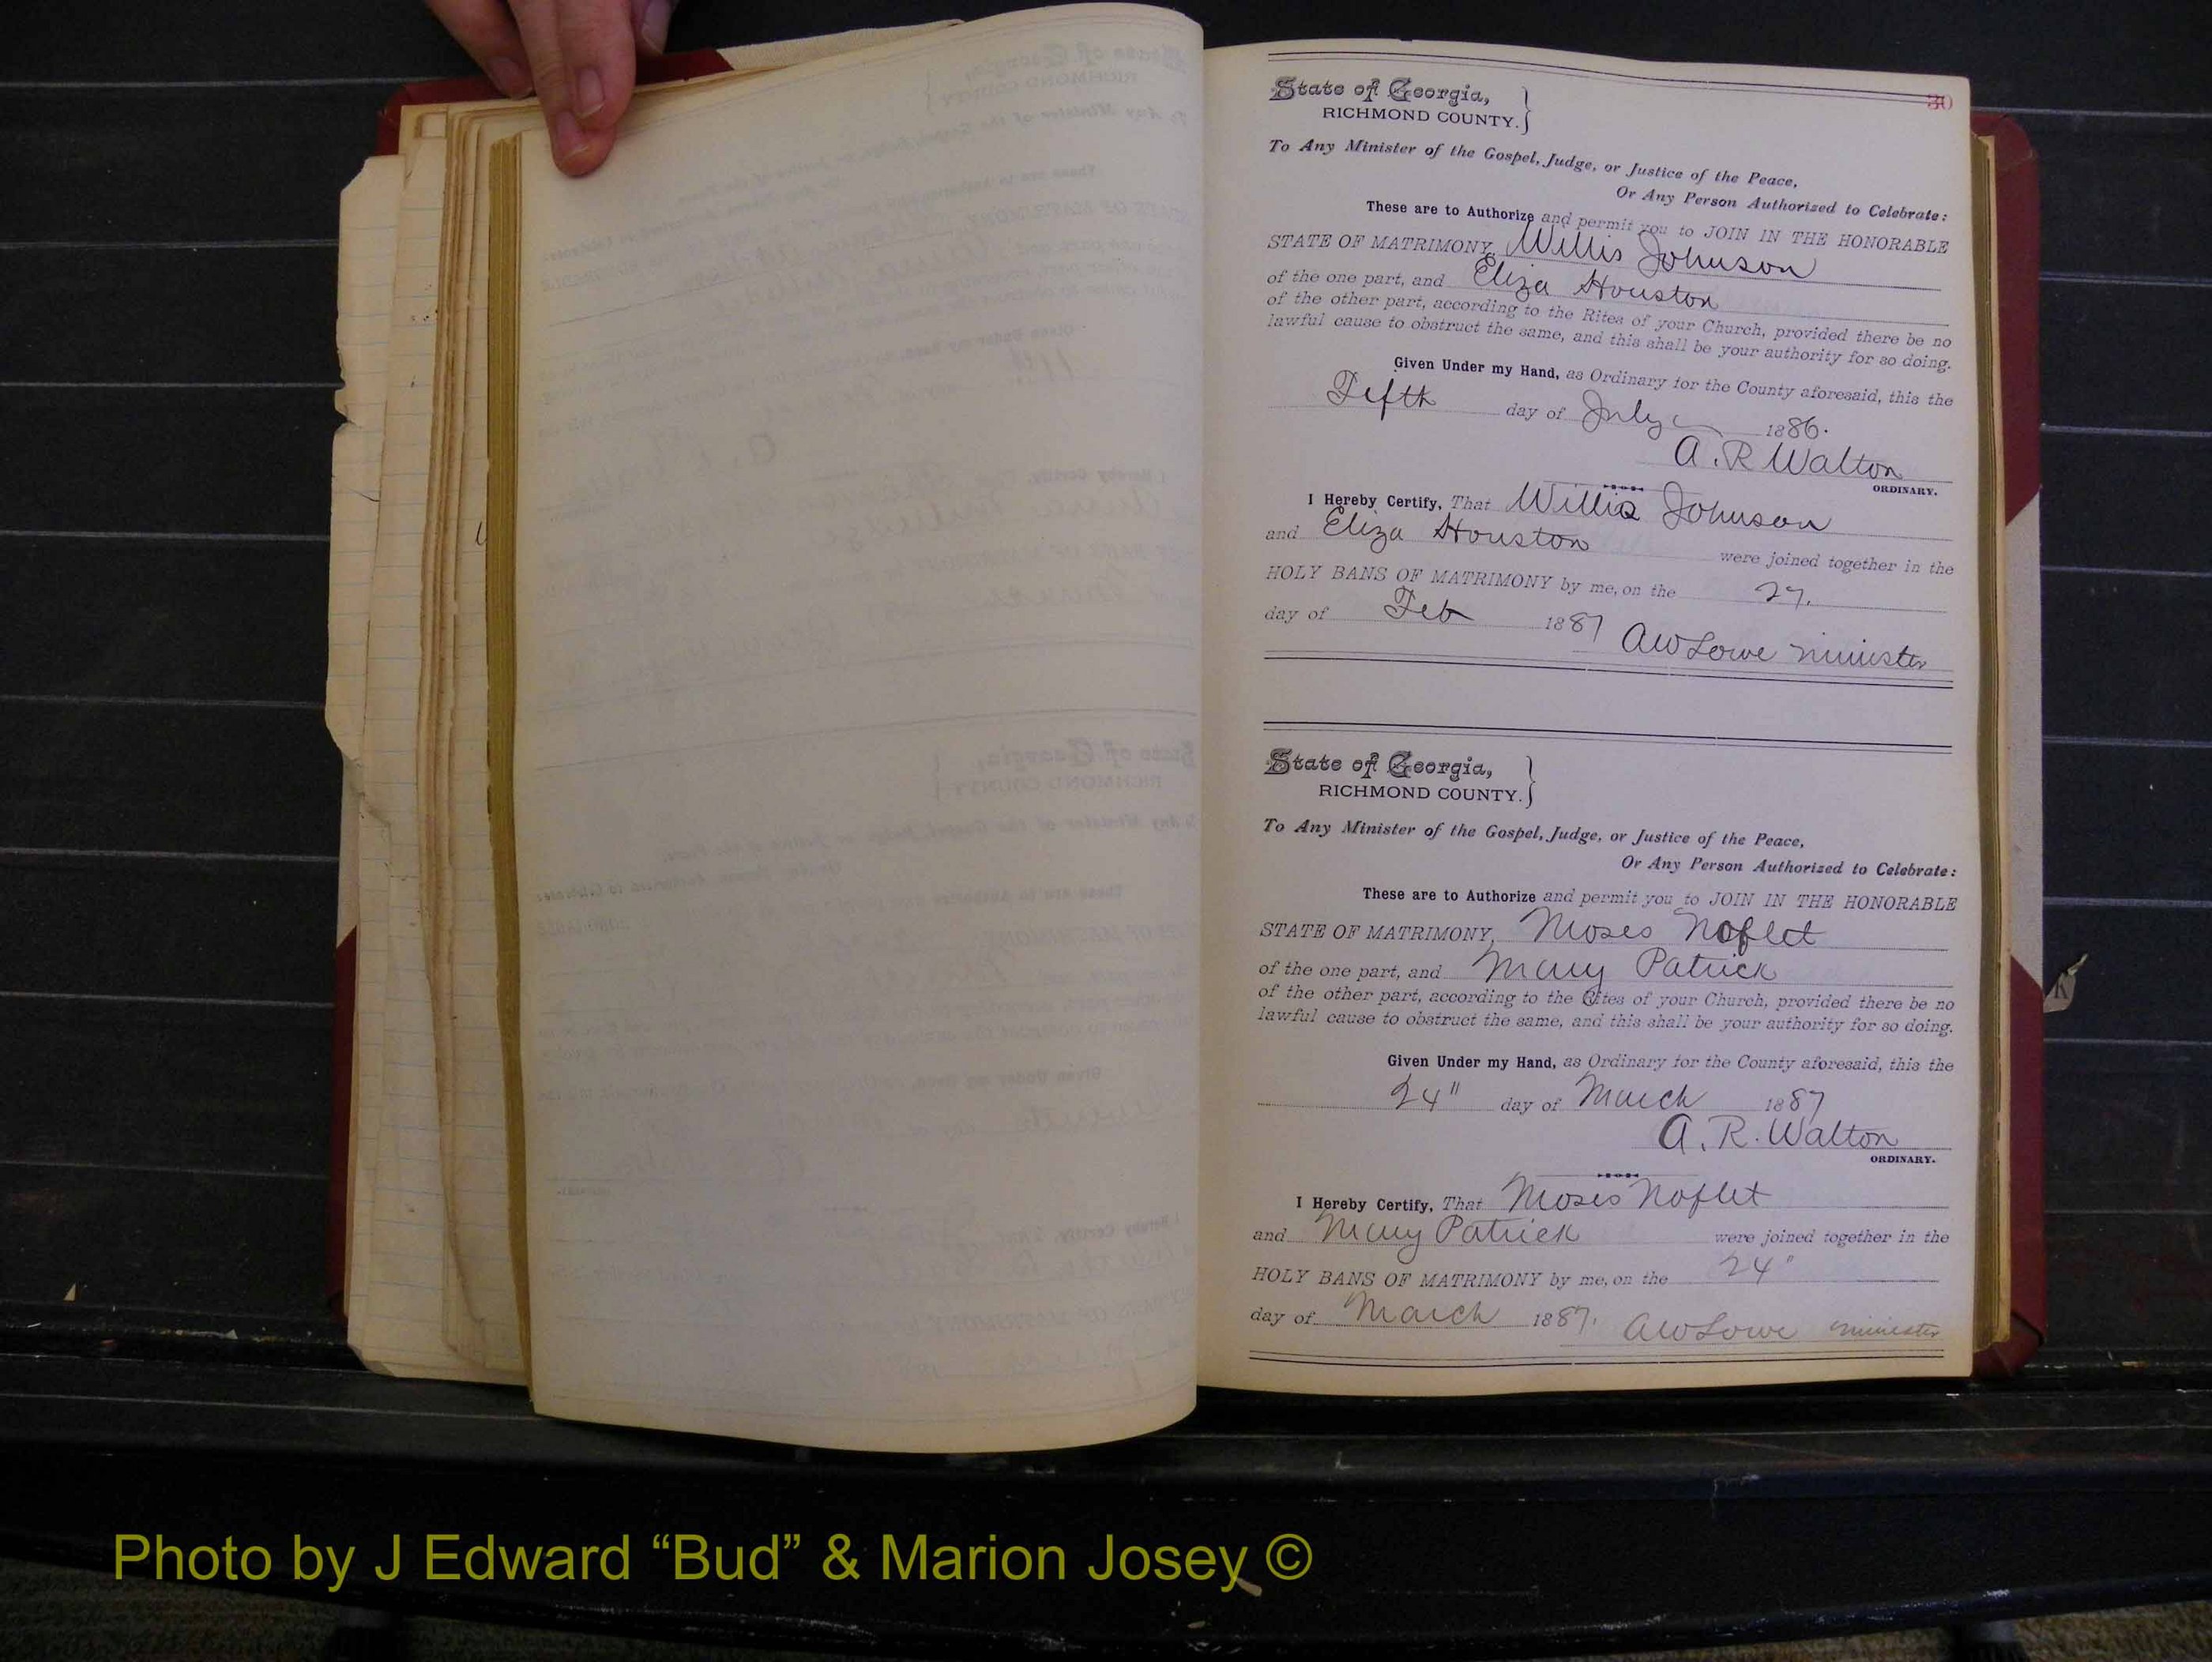 30
State of Georgia,
RICHMOND COUNTY.
To Any Minister of the Gospel, Judge, or Justice of the Peace,
Or Any Person Authorized to Celebrate:
These are to Authorize and permit you to JOIN IN THE HONORABLE
STATE OF MATRIMONY, Willis Johnson
of the one part, and Eliza Houston
of the other part, according to the Rites of your Church, provided there be no
lawful cause to obstruct the same, and this shall be your authority for so doing.
Given Under my Hand, as Ordinary for the County aforesaid, this the
Fifth day of July 1886.
A. R Walton
ORDINARY.
I Hereby Certify, That Willis Johnson
and Eliza Houston were joined together in the
HOLY BANS OF MATRIMONY by me, on the 27.
day of Feb 1887 AW Lowe minister
State of Georgia,
RICHMOND COUNTY.
To Any Minister of the Gospel, Judge, or Justice of the Peace,
Or Any Person Authorized to Celebrate:
These are to Authorize and permit you to JOIN IN THE HONORABLE
STATE OF MATRIMONY, Moses Noflet
of the one part, and Mary Patrick
of the other part, according to the Rites of your Church, provided there be no
lawful cause to obstruct the same, and this shall be your authority for so doing.
Given Under my Hand, as Ordinary for the County aforesaid, this the
24" day of March 1887
A. R. Walton
ORDINARY.
I Hereby Certify, That Moses Noflet
and Mary Patrick were joined together in the
HOLY BANS OF MATRIMONY by me, on the 24"
day of March 1887. AW Lowe minister
K
Photo by J Edward “Bud” & Marion Josey ©